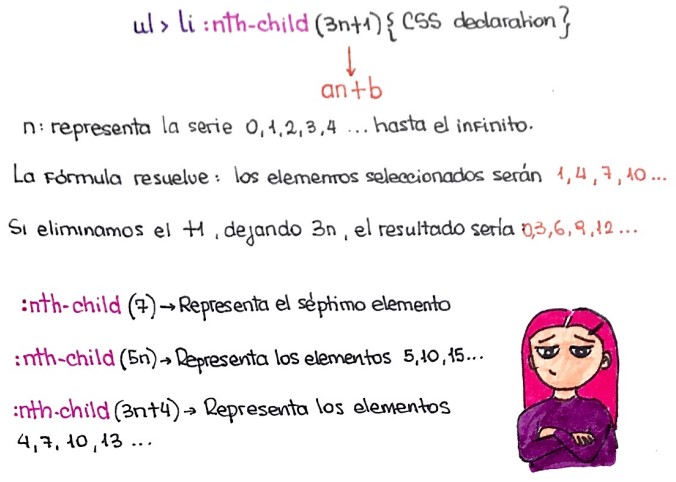 ul > li :nth-child (3n+1) { CSS declaration }
an+b
n: representa la serie 0,1,2,3,4 ... hasta el infinito.
La fórmula resuelve: los elementos seleccionados serán 1,4,7,10...
Si eliminamos el +1, dejando 3n, el resultado sería 0,3,6,9,12...
:nth-child (7) → Representa el séptimo elemento
:nth-child (5n) → Representa los elementos 5,10,15...
:nth-child (3n+4) → Representa los elementos
4,7,10,13 ...